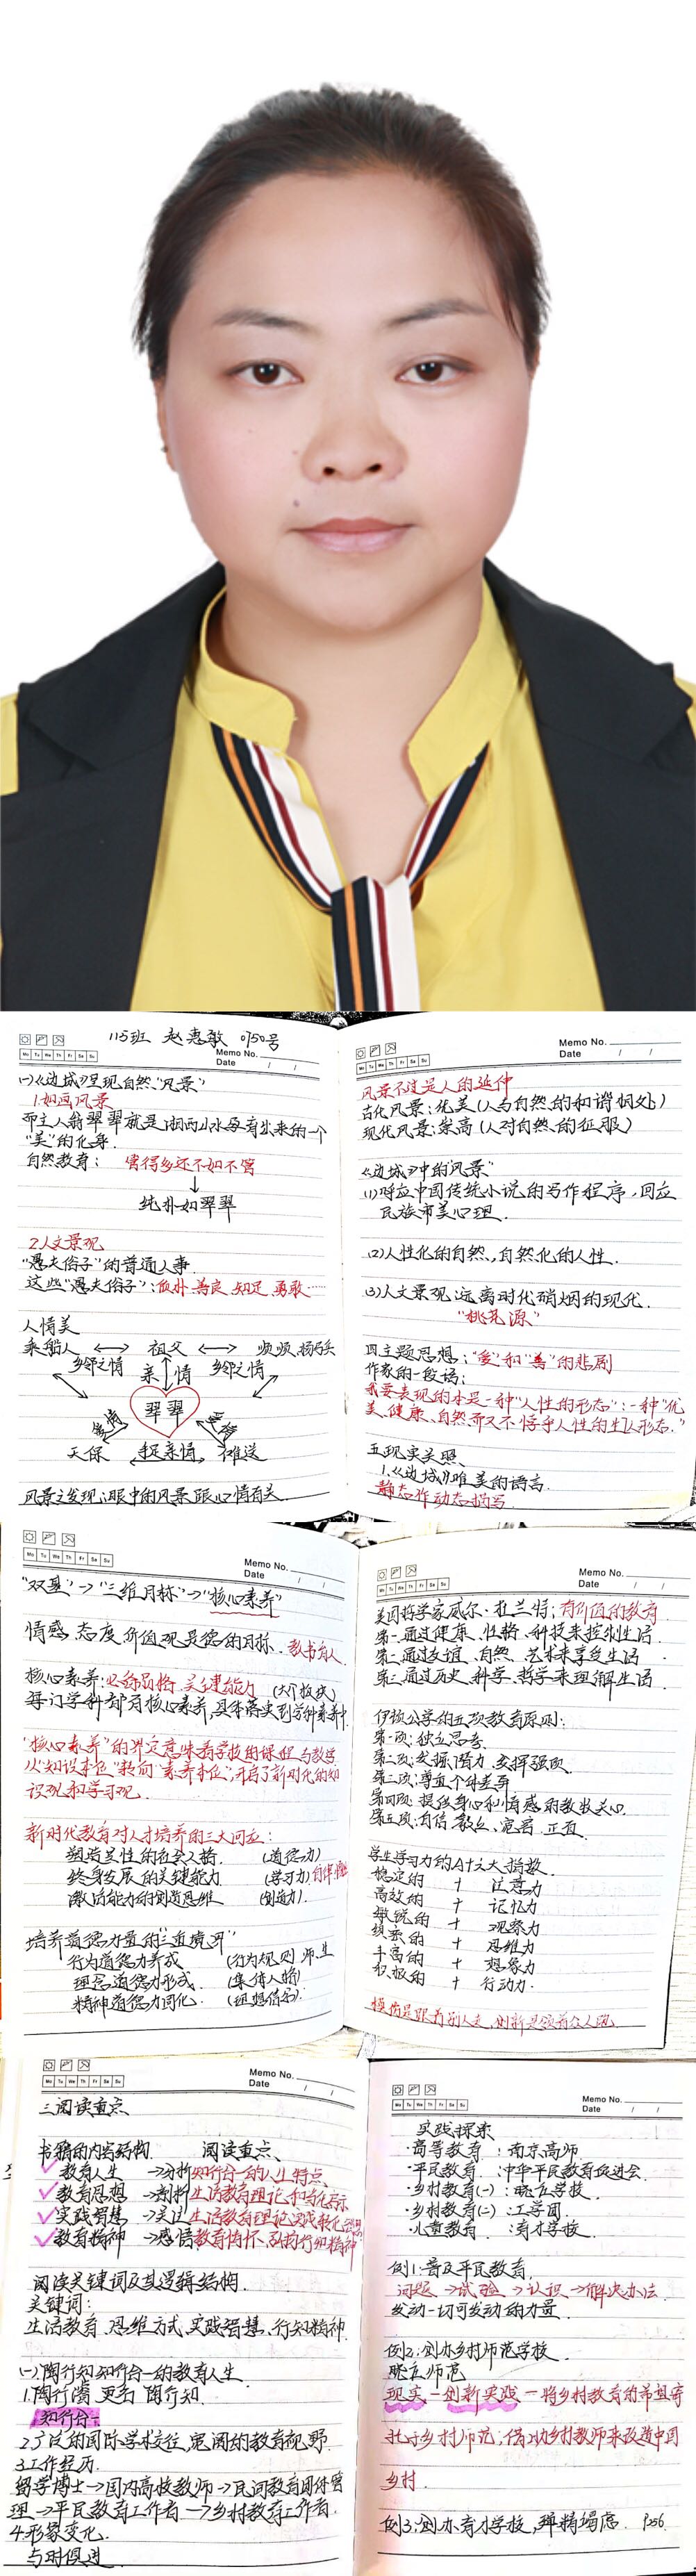 115班 赵惠敏 0750号
Memo No.
Date / /
Mo Tu We Th Fr Sa Su
(一)《边城》呈现自然"风景"
1.如画风景
而主人翁翠翠就是湘西山水孕育出来的一个
"美"的化身.
自然教育: 管得多还不如不管
↓
纯朴如翠翠
2.人文景观
"愚夫俗子"的普通人事.
这些"愚夫俗子":质朴 善良 知足 勇敢……
人情美
乘船人 ⟷ 祖父 ⟷ 顺顺、杨马兵
乡邻之情 亲情 乡邻之情
翠翠
爱情 爱情
天保 手足亲情 傩送
风景之发现:眼中的风景跟心情有关.
Memo No.
Date / /
Mo Tu We Th Fr Sa Su
风景不过是人的延伸
古代风景:优美(人与自然的和谐相处)
现代风景:崇高(人对自然的征服)
《边城》中的"风景"
(1)呼应中国传统小说的写作程序,回应
民族审美心理.
(2)人性化的自然,自然化的人性.
(3)人文景观:远离时代硝烟的现代
"桃花源"
四主题思想:"爱"和"善"的悲剧
作家的一段话:
我要表现的本是一种"人性的形态":一种"优
美、健康、自然而又不悖乎人性的生人形态."
五现实关照
1.《边城》唯美的语言.
静态作动态描写
Memo No.
Date / /
Mo Tu We Th Fr Sa Su
"双基"→"三维目标"→"核心素养"
情感 态度 价值观是德的目标. 教书育人
核心素养:必备品格 关键能力 (六个板块)
每门学科都有核心素养,具体落实到学科素养中.
"核心素养"的界定意味着学校的课程与教学
从"知识本位"转向"素养本位",开启了新时代的知
识观和学习观.
新时代教育对人才培养的三大回应:
塑造灵性的自然人格 (道德力)
终身发展的关键能力 (学习力)
激活能力的创造思维 (创造力)
培养道德力量的"三道境河"
行为道德力养成 (行为规则 师生
理念道德力形成. (集体人格)
精神道德力同化. (理想信念).
Memo No.
Date / /
Mo Tu We Th Fr Sa Su
美国哲学家威尔·杜兰特:有价值的教育
第一,通过健康、性格、科技来控制生活.
第二,通过友谊、自然、艺术来享受生活
第三,通过历史、科学、哲学来理解生活.
伊顿公学的五项教育原则:
第一项:独立思考.
第二项:发掘潜力,发挥强项.
第三项:尊重个体差异
第四项:提供身心和情感的教牧关心.
第五项:自信、教立、宽容、正直.
学生学习力的A十六大指数.
稳定的 + 注意力
高效的 + 记忆力
敏锐的 + 观察力
缜密的 + 思维力
丰富的 + 想象力
积极的 + 行动力.
模仿是跟着别人走,创新是领着众人跑
Memo No.
Date / /
Mo Tu We Th Fr Sa Su
三阅读重点
书籍的内容结构. 阅读重点.
教育人生 →分析知行合一的人生特点
教育思想 →剖析生活教育理论和目标
实践智慧 →关注生活教育理论实践转化
教育精神 →感悟教育情怀、弘扬行知精神
阅读关键词及其逻辑结构.
关键词:
生活教育、思维方式、实践智慧、行知精神.
(一)陶行知知行合一的教育人生
1.陶行知 更名 陶行知.
知行合一
2.广泛的国际学术交往,宽阔的教育视野.
3.工作经历.
留学博士→国内高校教师→民间教育团体管
理→平民教育工作者→乡村教育工作者.
4.形象变化.
与时俱进
Memo No.
Date / /
Mo Tu We Th Fr Sa Su
实践探索
·高等教育 :南京高师
·平民教育 :中华平民教育促进会.
·乡村教育(一) :晓庄学校.
·乡村教育(二) :工学团.
·儿童教育 :育才学校.
例1:普及平民教育.
问题→试验→认识→解决办法.
发动一切可发动的力量.
例2:创办乡村师范学校.
晓庄师范
现实—创新实践—将乡村教育的希望寄
托于乡村师范;借助乡村教师来改造中国
乡村.
例3:创办育才学校,殚精竭虑. P256